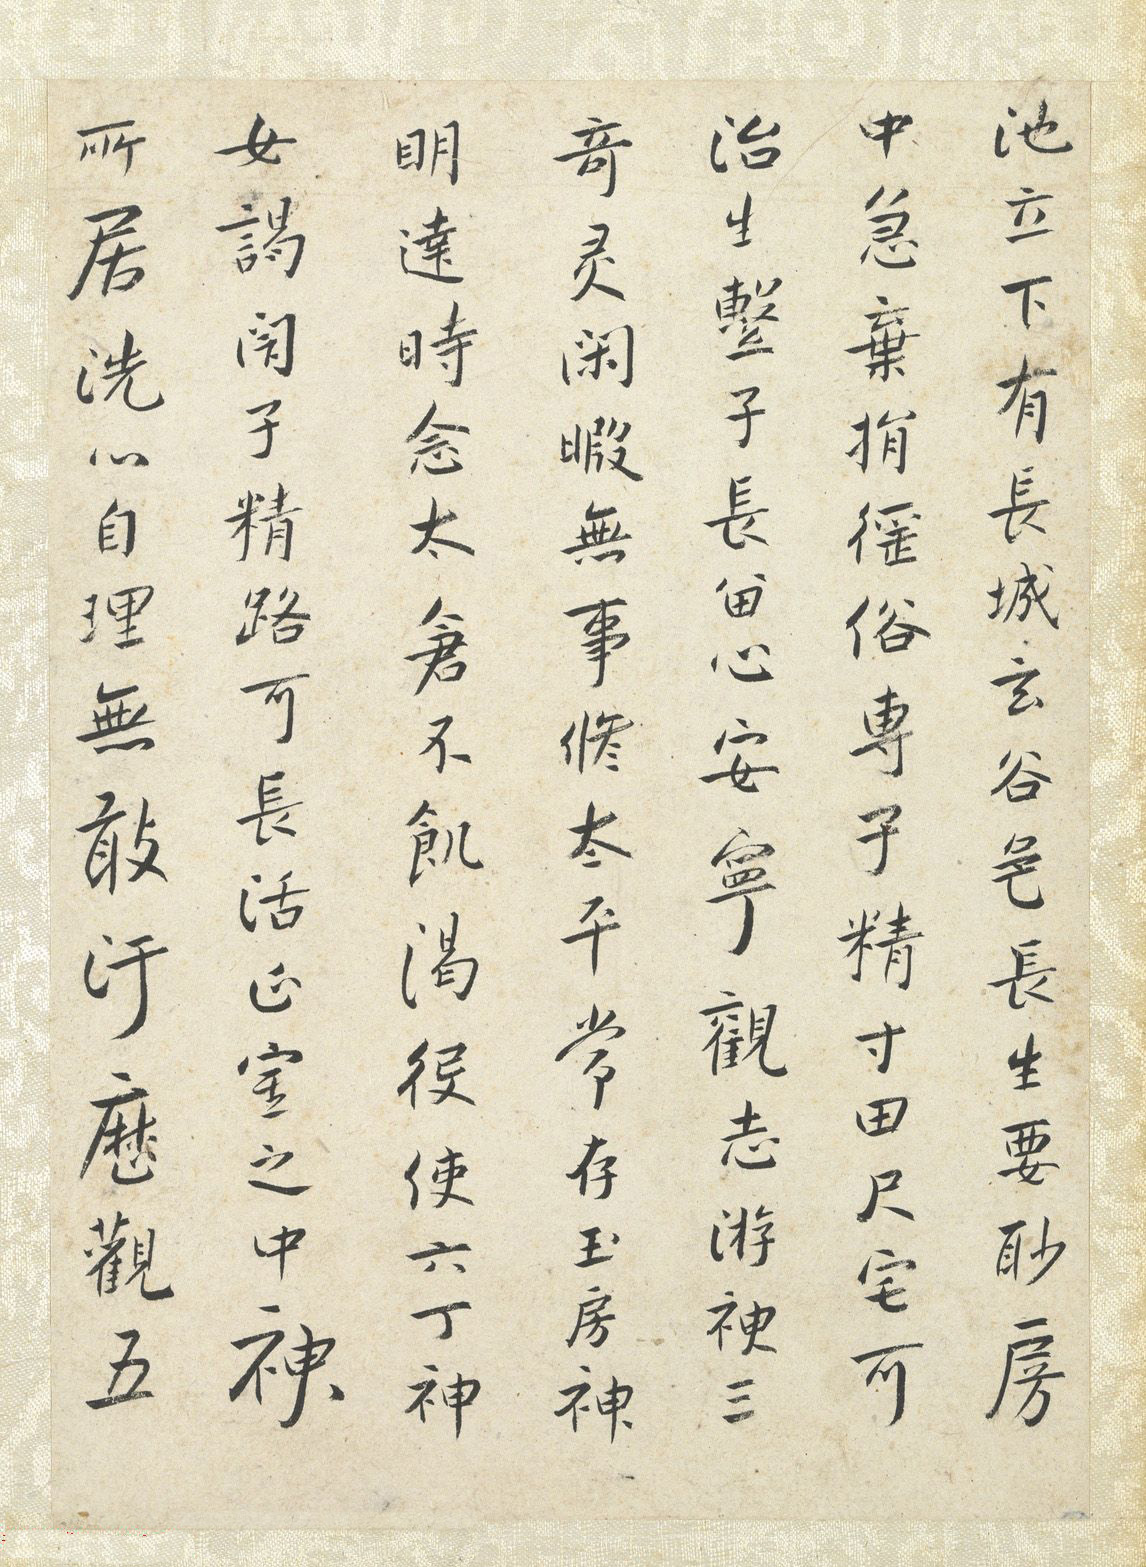 池立下有長城玄谷邑長生要眇房
中急棄捐徭俗専子精寸田尺宅可
治生繫子長留心安寧觀志游神三
奇灵閑暇無事脩太平常存玉房神
明達時念太倉不飢渴役使六丁神
女謁閇子精路可長活正室之中神
所居洗心自理無敢汙歷觀五